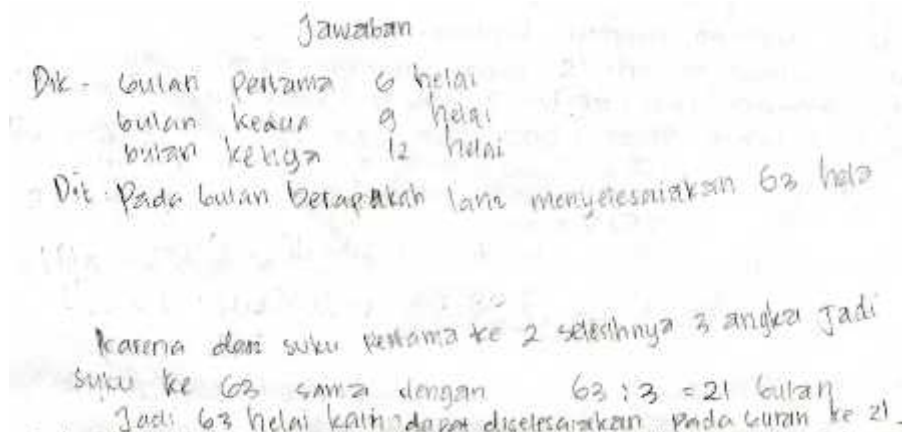 Jawaban
Dik - bulan pertama 6 helai
bulan kedua 9 helai
bulan ketiga 12 helai
Dit - Pada bulan berapakah lana menyelesaiakan 63 hela
karena dari suku pertama ke 2 selesihnya 3 angka Jadi
suku ke 63 sama dengan 63 : 3 = 21 bulan
Jadi 63 helai kain dapat diselesaiakan pada bulan ke 21.